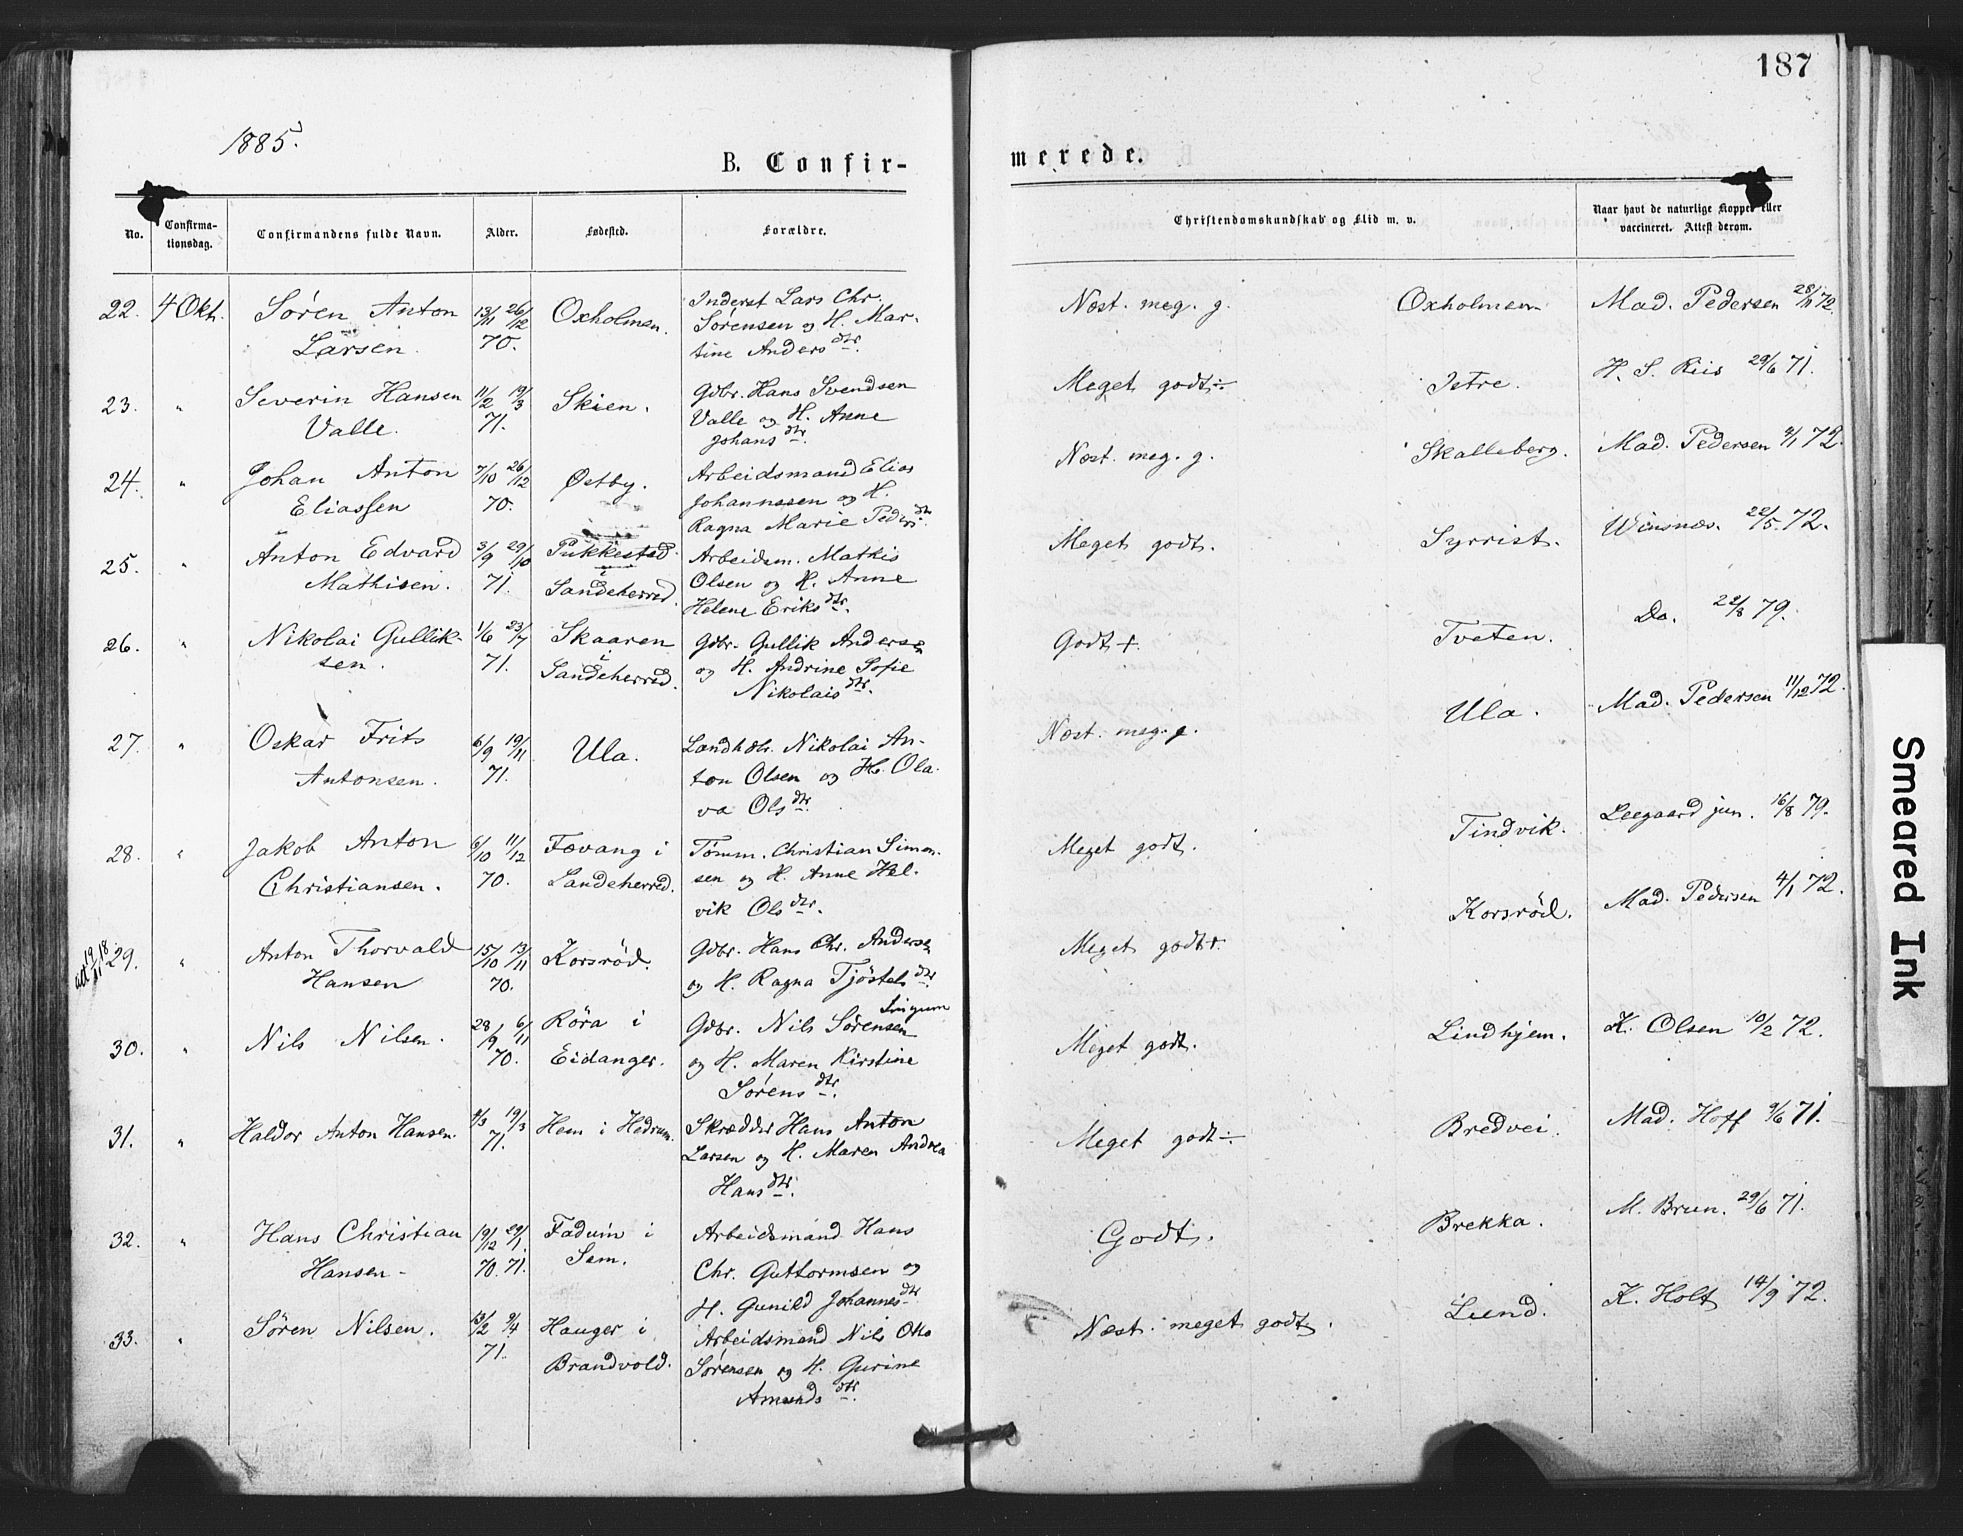 187
1885.
B. Confir-
merede.
No.
Confirma-
tionsdag.
Confirmandens fulde Navn.
Alder.
Fødested.
Forældre.
Christendomskundskab og Flid m. v.
Naar havt de naturlige Kopper eller
vaccineret. Attest derom.
22. 4 Okt. Søren Anton Larsen. 13/11 26/12 70. Oxholmen.
Inderst Lars Chr.
Sørensen og H. Mar-
tine Anders dtr.
Næst. meg. g. Oxholmen Mad. Pedersen 28/11 72.
23. " Severin Hansen Valle. 11/2 19/3 71. Skien.
Gdbr. Hans Svendsen
Valle og H. Anne
Johans dtr.
Meget godt ÷ Jetre. H. S. Riis 29/6 71.
24. " Johan Anton Eliassen 7/10 26/12 70. Østby.
Arbeidsmand Elias
Johannssen og H.
Ragna Marie Peders dtr.
Næst. meg. g. Skalleberg. Mad. Pedersen 9/1 72.
25. " Anton Edvard Mathisen. 3/9 29/10 71. Pukkestad i Sandeherred.
Arbeidsm. Mathis
Olsen og H. Anne
Helene Eriks dtr.
Meget godt. Syrrist. Winsnæs. 22/5 72.
26. " Nikolai Gullik-
sen. 1/6 23/7 71. Skaaren i Sandeherred.
Gdbr. Gullik Andersen
og H. Andrine Sofie
Nikolais dtr.
Godt + Tveten. Do. 22/8 79.
27. " Oskar Frits Antonsen. 6/9 19/11 71. Ula.
Landhdl. Nikolai An-
ton Olsen og H. Ola-
va Ols dtr.
Næst. meg. g. Ula. Mad. Pedersen 11/12 72.
28. " Jakob Anton Christiansen. 6/10 11/12 70. Fovang i Sandeherred.
Tømm. Christian Simon-
sen og H. Anne Hel-
vik Ols dtr.
Meget godt. Tindvik. Leegaard jun. 16/8 79.
29. " Anton Thorvald Hansen 15/10 13/11 70. Korsrød.
Gdbr. Hans Chr. Andersen
og H. Ragna Tjøstels dtr.
Meget godt + Korsrød. Mad. Pedersen 4/1 72.
30. " Nils Nilsen. 28/9 6/11 70. Röra i Eidanger.
Gdbr. Nils Sørensen
og H. Maren Kirstine
Sørens dtr.
Meget godt. Lindhjem. K. Olsen 10/2 72.
31. " Haldor Anton Hansen. 4/3 19/3 71. Hem i Hedrum.
Skrædder Hans Anton
Larsen og H. Maren Andrea
Hans dtr.
Meget godt ÷ Bredvei. Mad. Hoff 9/6 71.
32. " Hans Christian Hansen - 19/12 29/1 70. 71. Fadum i Sem.
Arbeidsmand Hans
Chr. Guttormsen og
H. Gunild Johannes dtr
Godt. Brekka. M. Brun. 29/6 71.
33. " Søren Nilsen. 13/2 9/4 71. Hauger i Brandvold.
Arbeidsmand Nils Otto
Sørensen og H. Gurine
Amunds dtr.
Næst. meget godt. Lund. K. Holt 14/9 72.
Smeared Ink